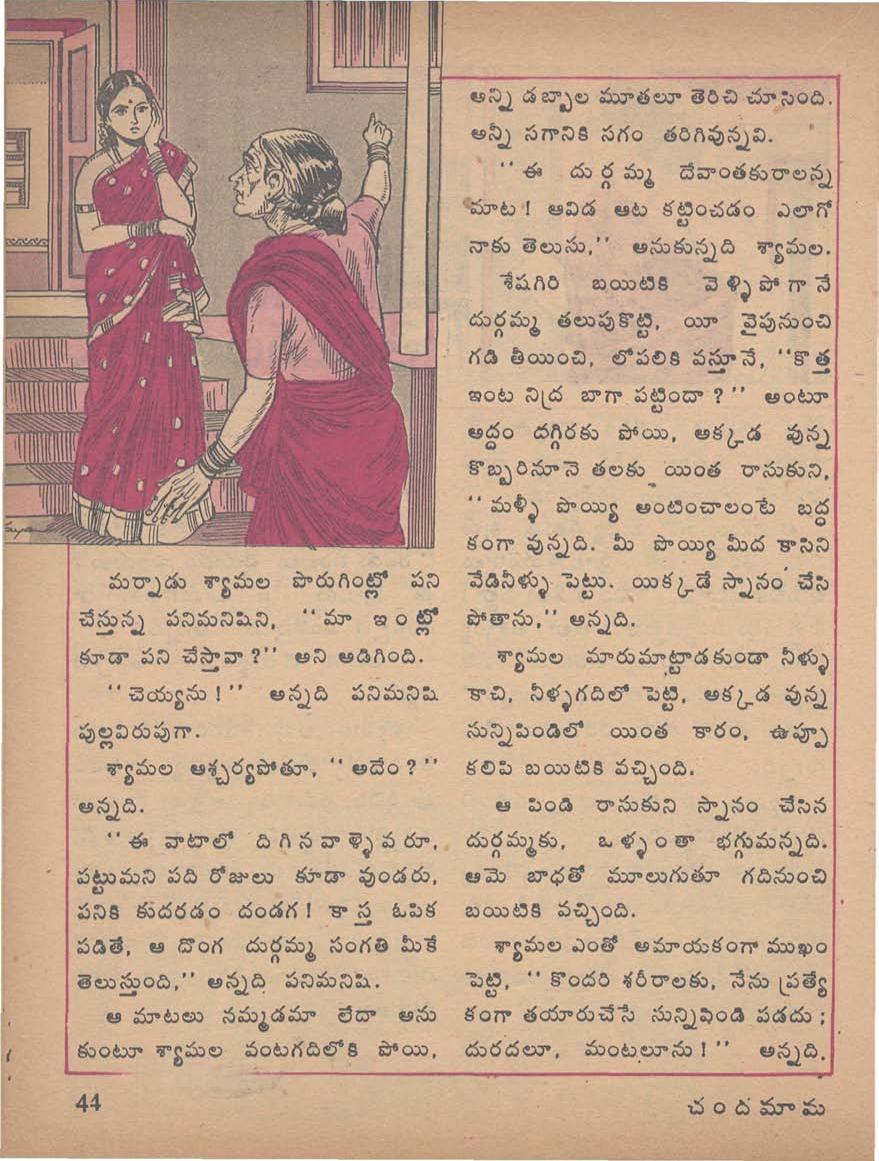 మర్నాడు శ్యామల పొరుగింట్లో పని
చేస్తున్న పనిమనిషిని, ‘‘మా ఇంట్లో
కూడా పని చేస్తావా?’’ అని అడిగింది.
‘‘చెయ్యను!’’ అన్నది పనిమనిషి
పుల్లవిరుపుగా.
శ్యామల ఆశ్చర్యపోతూ, ‘‘అదేం?’’
అన్నది.
‘‘ఈ వాటాలో దిగినవాళ్ళెవరూ,
పట్టుమని పది రోజులు కూడా వుండరు,
పనికి కుదరడం దండగ! కాస్త ఓపిక
పడితే, ఆ దొంగ దుర్గమ్మ సంగతి మీకే
తెలుస్తుంది,’’ అన్నది పనిమనిషి.
ఆ మాటలు నమ్మడమా లేదా అను
కుంటూ శ్యామల వంటగదిలోకి పోయి,
అన్ని డబ్బాల మూతలూ తెరిచి చూసింది.
అన్నీ సగానికి సగం తరిగివున్నవి.
‘‘ఈ దుర్గమ్మ దేవాంతకురాలన్న
మాట! ఆవిడ ఆట కట్టించడం ఎలాగో
నాకు తెలుసు,’’ అనుకున్నది శ్యామల.
శేషగిరి బయిటికి వెళ్ళిపోగానే
దుర్గమ్మ తలుపుకొట్టి, యీ వైపునుంచి
గడి తీయించి, లోపలికి వస్తూనే, ‘‘కొత్త
ఇంట నిద్ర బాగా పట్టిందా?’’ అంటూ
అద్దం దగ్గిరకు పోయి, అక్కడ వున్న
కొబ్బరినూనె తలకు యింత రాసుకుని,
‘‘మళ్ళీ పొయ్యి అంటించాలంటే బద్ధ
కంగా వున్నది. మీ పొయ్యి మీద కాసిని
వేడినీళ్ళు పెట్టు. యిక్కడే స్నానం చేసి
పోతాను,’’ అన్నది.
శ్యామల మారుమాట్టాడకుండా నీళ్ళు
కాచి, నీళ్ళగదిలో పెట్టి, అక్కడ వున్న
సున్నిపిండిలో యింత కారం, ఉప్పూ
కలిపి బయిటికి వచ్చింది.
ఆ పిండి రాసుకుని స్నానం చేసిన
దుర్గమ్మకు, ఒళ్ళంతా భగ్గుమన్నది.
ఆమె బాధతో మూలుగుతూ గదినుంచి
బయిటికి వచ్చింది.
శ్యామల ఎంతో అమాయకంగా ముఖం
పెట్టి, ‘‘కొందరి శరీరాలకు, నేను ప్రత్యే
కంగా తయారుచేసే సున్నిపిండి పడదు;
దురదలూ, మంటలూను!’’ అన్నది.
44
చందమామ